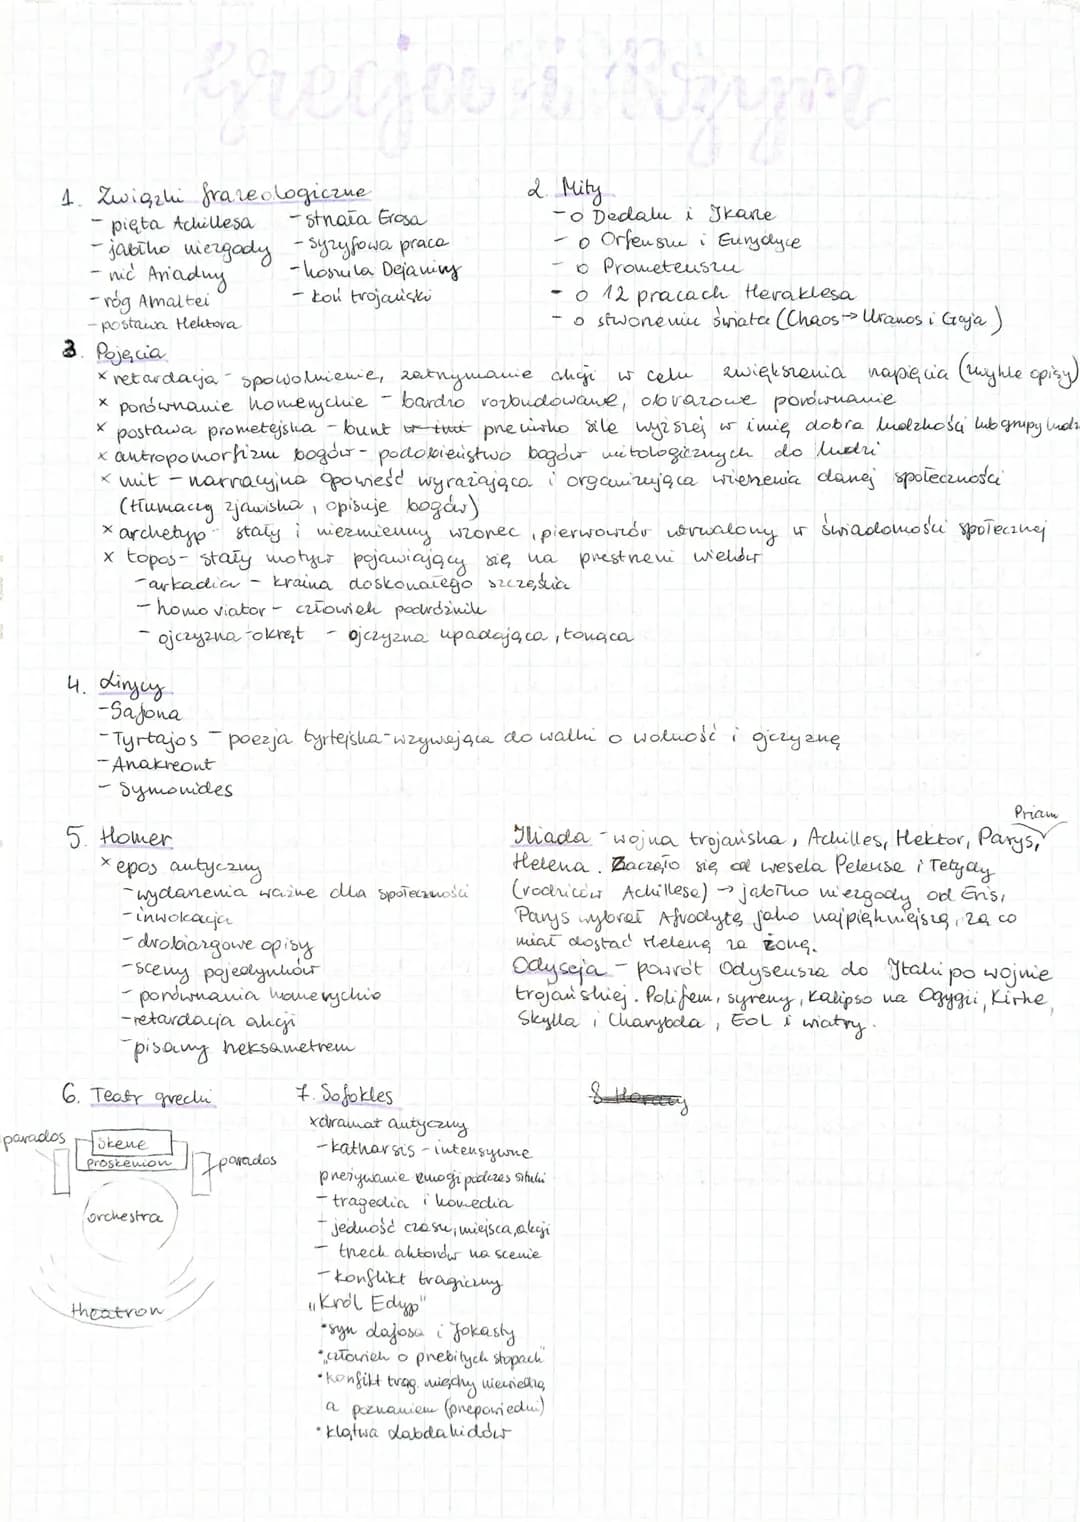 Grecja i Rzym
1. Związki frazeologiczne
- pięta Achillesa
- jabłko niezgody
- nić Ariadny
- róg Amaltei
- postawa Hektora
- strzała Erosa
- syzyfowa praca
- koszula Dejaniry
- koń trojański
2. Mity
- o Dedalu i Ikarze
- o Orfeuszu i Eurydyce
- o Prometeuszu
- o 12 pracach Heraklesa
- o stworzeniu świata (Chaos → Uranos i Gaja)
3. Pojęcia
x retardacja - spowolnienie, zatrzymanie akcji w celu zwiększenia napięcia (zwykle opisy)
x porównanie homeryckie - bardzo rozbudowane, obrazowe porównanie
x postawa prometejska - bunt przeciwko sile wyższej w imię dobra ludzkości lub grupy ludzi
x antropomorfizm bogów - podobieństwo bogów mitologicznych do ludzi
x mit - narracyjna opowieść wyrażająca i organizująca wierzenia danej społeczności
(tłumaczy zjawiska, opisuje bogów)
x archetyp - stały i niezmienny wzorzec, pierwowzór utrwalony w świadomości społecznej
x topos - stały motyw pojawiający się na przestrzeni wieków
- arkadia - kraina doskonałego szczęścia
- homo viator - człowiek podróżnik
- ojczyzna-okręt - ojczyzna upadająca, tonąca
4. Lirycy
- Safona
- Tyrtajos - poezja tyrtejska - wzywająca do walki o wolność i ojczyznę
- Anakreont
- Symonides
5. Homer
x epos antyczny
- wydarzenia ważne dla społeczności
- inwokacja
- drobiazgowe opisy
- sceny pojedynków
- porównania homeryckie
- retardacja akcji
- pisany heksametrem
Priam
Iliada - wojna trojańska, Achilles, Hektor, Parys,
Helena. Zaczęło się od wesela Peleusa i Tetydy
(rodziców Achillesa) → jabłko niezgody od Eris,
Parys wybrał Afrodytę jako najpiękniejszą, za co
miał dostać Helenę za żonę.
Odyseja - powrót Odyseusza do Itaki po wojnie
trojańskiej. Polifem, syreny, Kalipso na Ogygii, Kirke,
Skylla i Charybda, Eol i wiatry.
6. Teatr grecki
parados
skene
proskenion
parados
orchestra
theatron
7. Sofokles
x dramat antyczny
- katharsis - intensywne
przeżywanie emocji podczas sztuki
- tragedia i komedia
- jedność czasu, miejsca, akcji
- trzech aktorów na scenie
- konflikt tragiczny
„Król Edyp"
• syn Lajosa i Jokasty
• „człowiek o przebitych stopach"
• konflikt trag. między niewiedzą
a poznaniem (przepowiedni)
• klątwa Labdakidów
8. Horacy